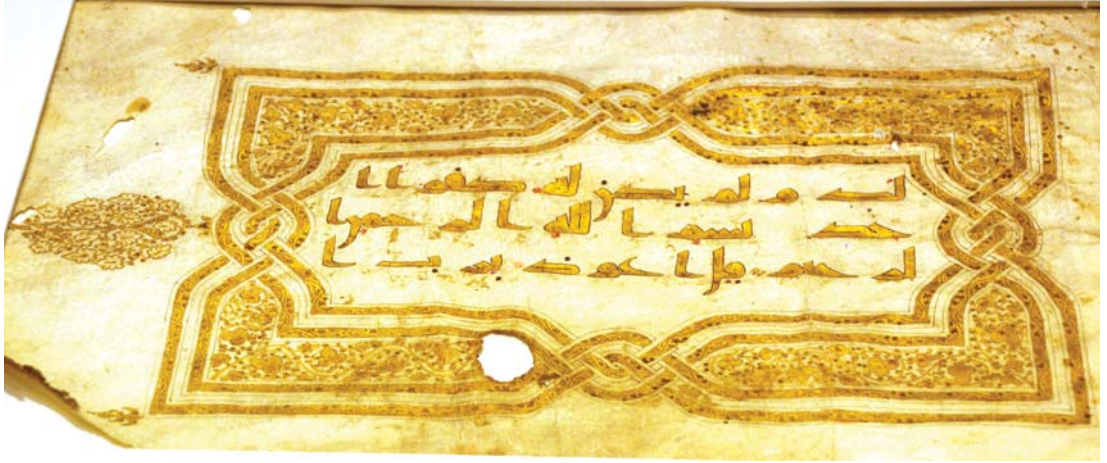 لد و لم يكن له كفوا ا
حد بسم الله الرحمن ا
لرحيم قل اعوذ برب ا